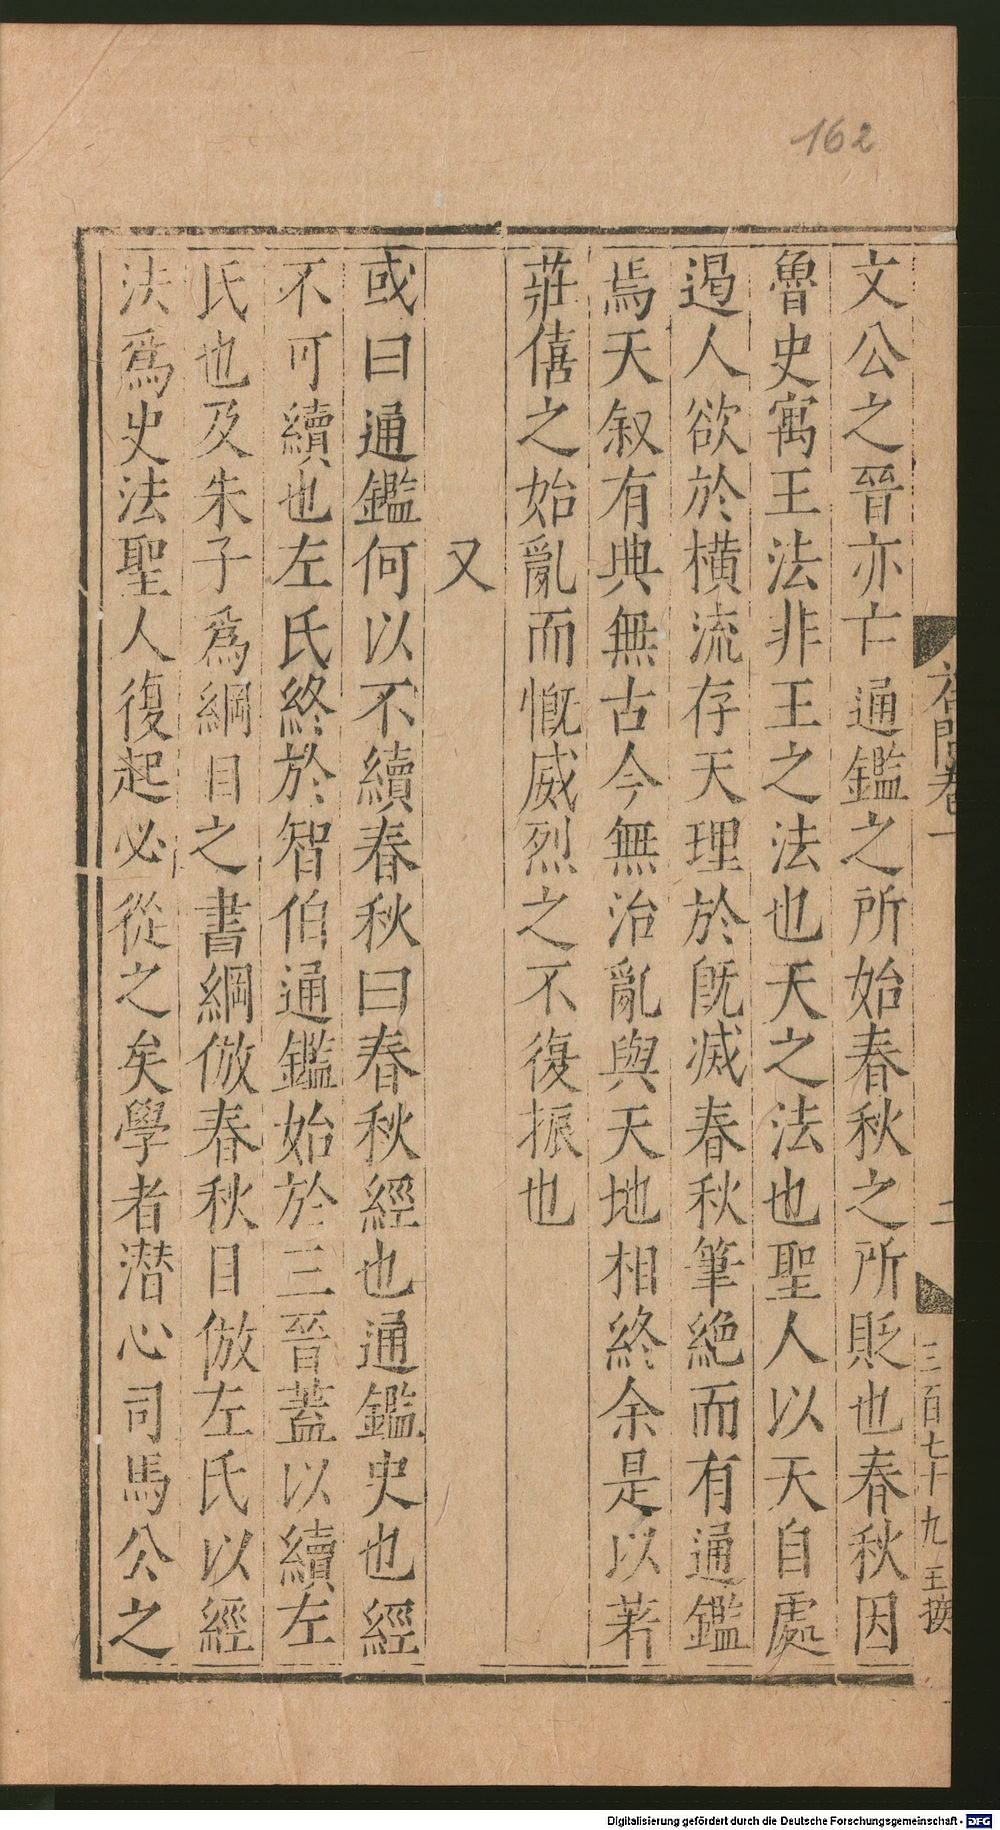 162
文公之晉亦亡通鑑之所始春秋之所貶也春秋因
魯史寓王法非王之法也天之法也聖人以天自處
遏人欲於橫流存天理於既滅春秋筆絶而有通鑑
焉天叙有典無古今無治亂與天地相終余是以著
莊僖之始亂而慨威烈之不復振也
又
或曰通鑑何以不續春秋曰春秋經也通鑑史也經
不可續也左氏終於智伯通鑑始於三晉蓋以續左
氏也及朱子爲綱目之書綱倣春秋目倣左氏以經
法爲史法聖人復起必從之矣學者潜心司馬公之
卷一
二
三百七十九 王
Digitalisierung gefördert durch die Deutsche Forschungsgemeinschaft - DFG